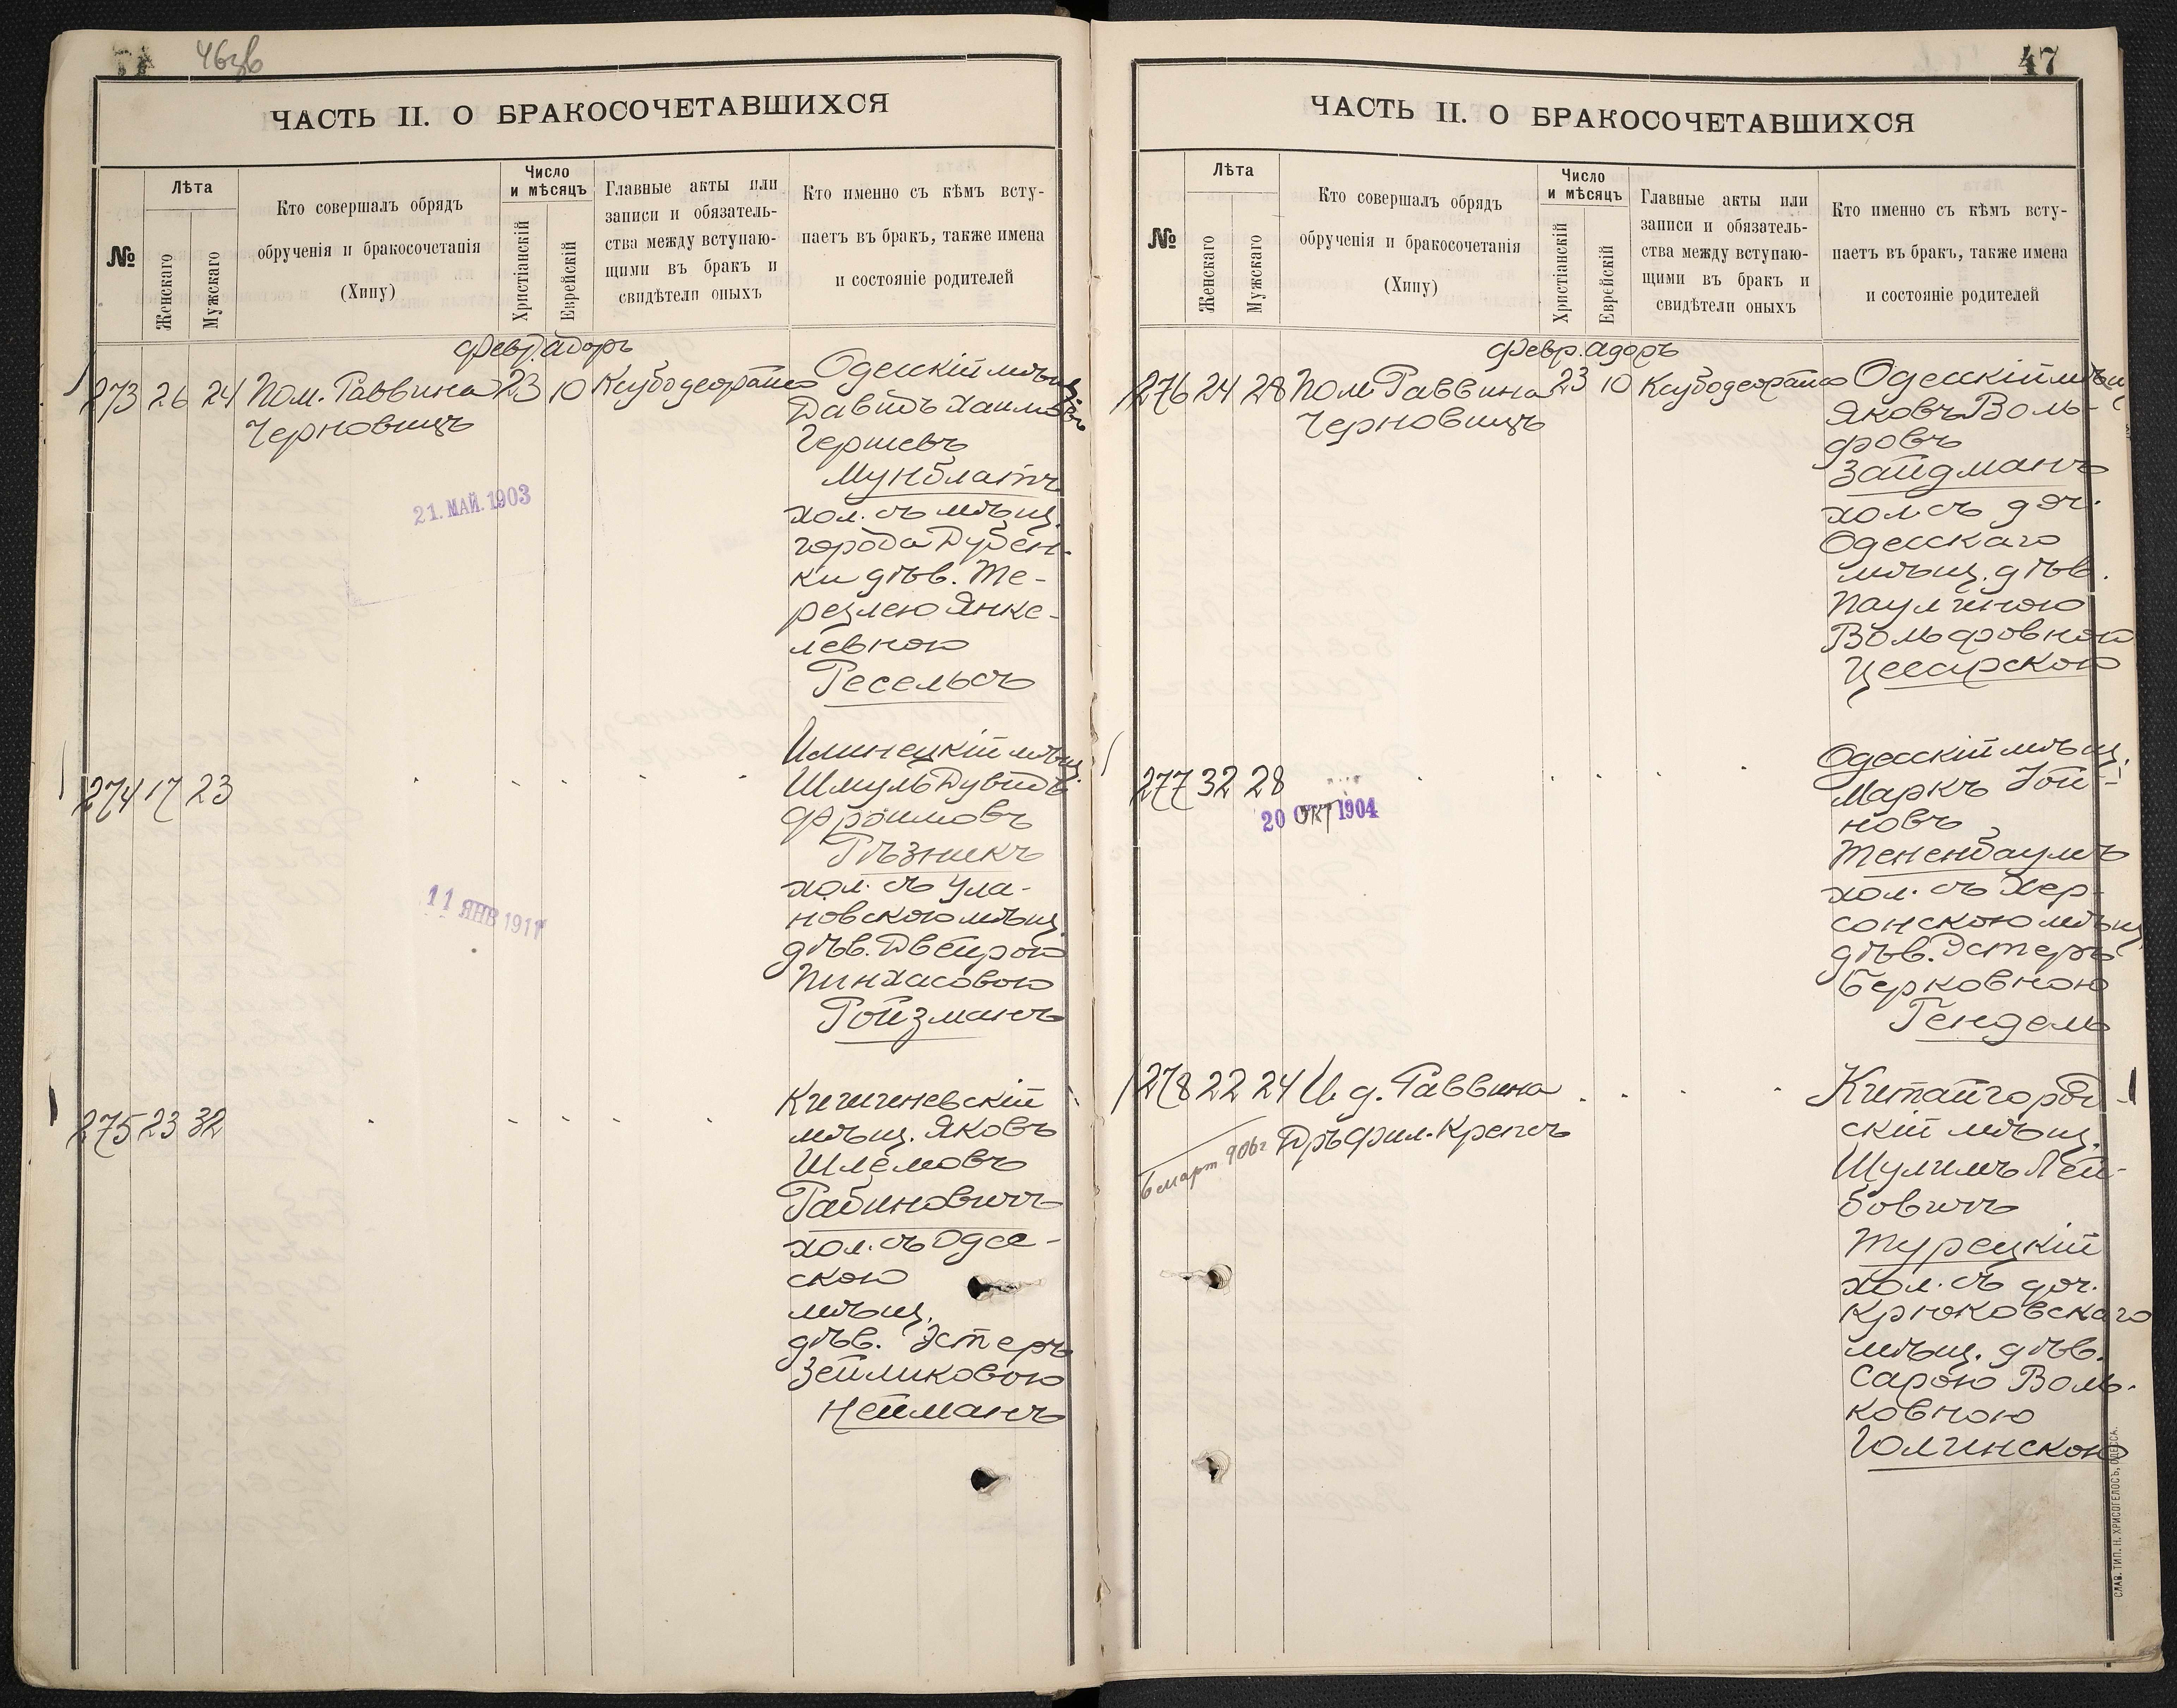 46зв
ЧАСТЬ II. О БРАКОСОЧЕТАВШИХСЯ
№
Лѣта
Женскаго
Мужскаго
Кто совершалъ обрядъ
обрученія и бракосочетанія
(Хипу)
Число
и мѣсяцъ
Христіанскій
Еврейскій
Главные акты или
записи и обязатель-
ства между вступаю-
щими въ бракъ и
свидѣтели оныхъ
Кто именно съ кѣмъ всту-
паетъ въ бракъ, также имена
и состояніе родителей
Февр. Адоръ
273 26 24 Пом. Раввина 23 10 Ксубодеорайсо
Черновицъ
Одесскій мѣщ.
Давидъ Хаимовъ
Гершевъ
Мунблатъ
хол. съ мѣщ.
города Дубен-
ки дѣв. Те-
рецлею Янке-
левною
Ресельсъ
21. МАЙ. 1903
274 17 23
Илинецкій мѣщ.
Шмуль Дувидъ
Фроимовъ
Рѣзникъ
хол. съ Ула-
новскою мѣщ.
дѣв. Двейрою
Пинхасовою
Ройзманъ
11 ЯНВ 1911
275 23 32
Кишиневскій
мѣщ. Яковъ
Шлемовъ
Рабиновичъ
хол. съ Одес-
скою
мѣщ.
дѣв. Эстеръ
Зейликовою
Нейманъ
47
ЧАСТЬ II. О БРАКОСОЧЕТАВШИХСЯ
№
Лѣта
Женскаго
Мужскаго
Кто совершалъ обрядъ
обрученія и бракосочетанія
(Хипу)
Число
и мѣсяцъ
Христіанскій
Еврейскій
Главные акты или
записи и обязатель-
ства между вступаю-
щими въ бракъ и
свидѣтели оныхъ
Кто именно съ кѣмъ всту-
паетъ въ бракъ, также имена
и состояніе родителей
Февр. Адоръ
276 24 28 Пом. Раввина 23 10 Ксубодеорайсо
Черновицъ
Одесскій мѣщ.
Яковъ Воль-
фовъ
Зайдманъ
хол. съ доч.
Одесскаго
мѣщ. дѣв.
Паулиною
Вольфовною
Цесарскою
277 32 28
20 ОКТ 1904
Одесскій мѣщ.
Маркъ Іой-
новъ
Тененбаумъ
хол. съ Хер-
сонскою мѣщ.
дѣв. Эстеръ
Берковною
Гендель
278 22 24 И. д. Раввина
Дръ Фил. Крепсъ
6 март 906г
Китайгород-
скій мѣщ.
Шулимъ Лей-
бовичъ
Турецкій
хол. съ доч.
Крюковскаго
мѣщ. дѣв.
Сарою Воль-
ковною
Голинскою
СЛАВ. ТИП. Н. ХРИСОГЕЛОСЪ, ОДЕССА.